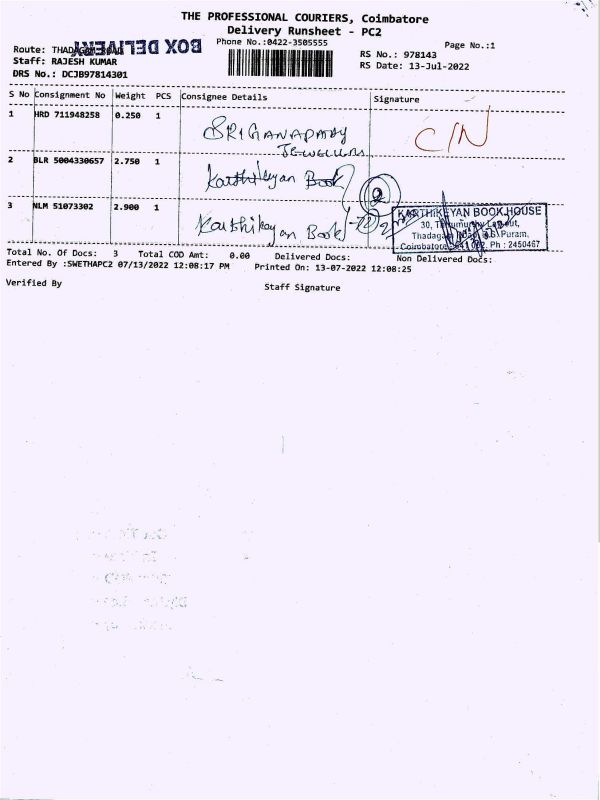 THE PROFESSIONAL COURIERS, Coimbatore
Delivery Runsheet - PC2
Phone No.:0422-3505555
Page No.:1
Route: THADAGAM ROAD
BOX DELIVERY
Staff: RAJESH KUMAR
DRS No.: DCJB97814301
RS No.: 978143
RS Date: 13-Jul-2022
S No Consignment No Weight PCS Consignee Details Signature
1 HRD 711948258 0.250 1 SRI GANAPATHY C/N
JEWELLERS
2 BLR 5004330657 2.750 1 Karthikeyan Book
2
3 NLM 51073302 2.900 1 Karthikeyan Book
KARTHIKEYAN BOOK HOUSE
30, Layout,
Thadagam Road, R.S. Puram,
Coimbatore - 641 002. Ph : 2450467
Total No. Of Docs: 3 Total COD Amt: 0.00 Delivered Docs: Non Delivered Docs:
Entered By :SWETHAPC2 07/13/2022 12:08:17 PM Printed On: 13-07-2022 12:08:25
Verified By Staff Signature